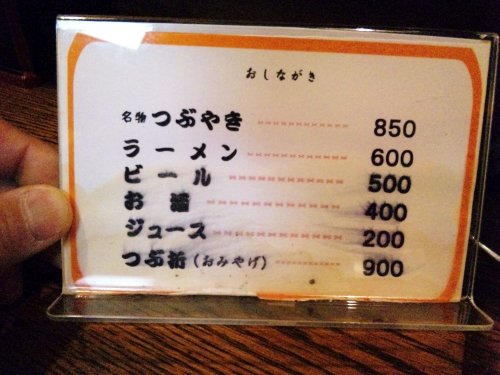 おしながき
名物 つぶやき 850
ラーメン 600
ビール 500
お酒 400
ジュース 200
つぶ缶(おみやげ) 900